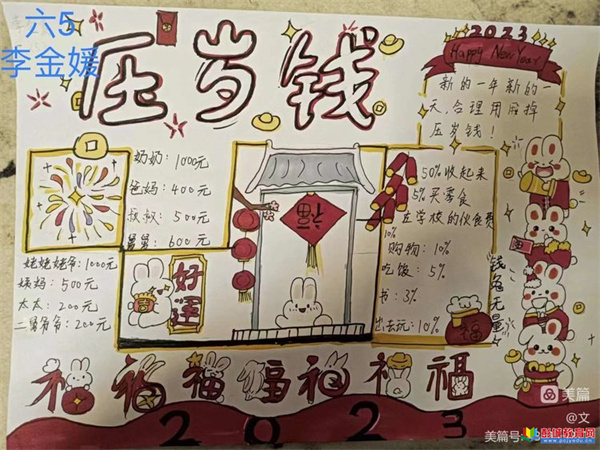 六5
李金媛
压岁钱
2023
Happy New Year
新的一年新的一
天,合理用用掉
压岁钱!
奶奶:1000元
爸妈:400元
叔叔:500元
舅舅:600元
姥姥姥爷:1000元
姨妈:500元
太太:200元
二舅爷爷:200元
福
好运
50%收起来
5%买零食
在学校的伙食费
10%
购物:10%
吃饭:5%
书:3%
出去玩:10%
钱多无量
福
福 福 福 福 福 福 福
2023
美篇
@文
美篇号:
www.pcjyedu.cn